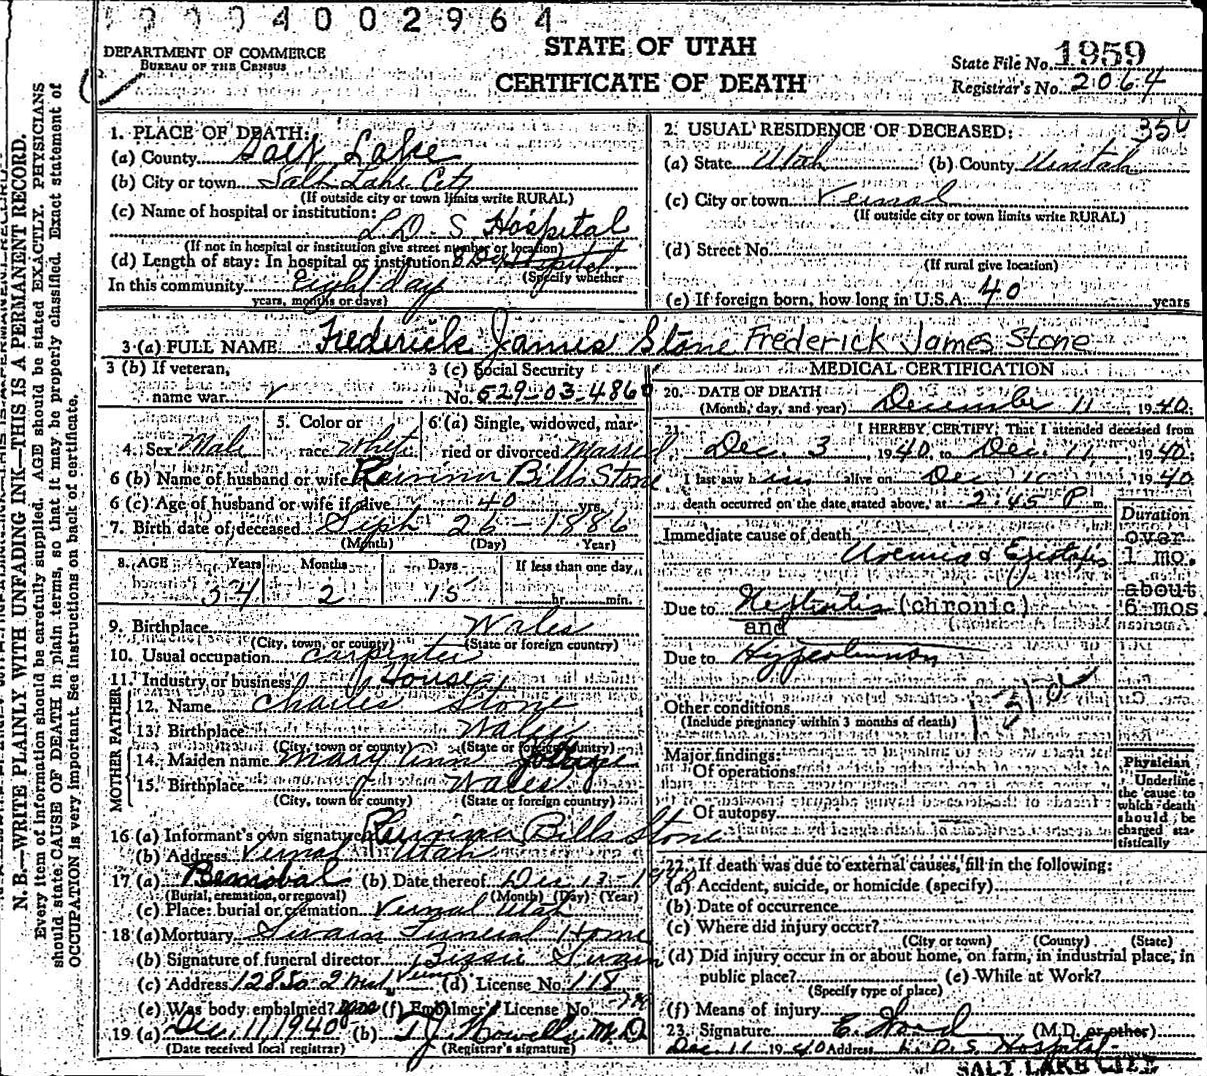 0 0 0 4 0 0 2 9 6 4
DEPARTMENT OF COMMERCE
BUREAU OF THE CENSUS
STATE OF UTAH
CERTIFICATE OF DEATH
State File No. 1959
Registrar's No. 2064
N. B.—WRITE PLAINLY WITH UNFADING INK—THIS IS A PERMANENT RECORD.
Every item of information should be carefully supplied. AGE should be stated EXACTLY. PHYSICIANS
should state CAUSE OF DEATH in plain terms, so that it may be properly classified. Exact statement of
OCCUPATION is very important. See instructions on back of certificate.
1. PLACE OF DEATH:
(a) County Salt Lake
(b) City or town Salt Lake City
(If outside city or town limits write RURAL)
(c) Name of hospital or institution:
L. D. S. Hospital
(If not in hospital or institution give street number or location)
(d) Length of stay: In hospital or institution 8 Day Hospital
(Specify whether
In this community Eight day
years, months or days)
2. USUAL RESIDENCE OF DECEASED: 350
(a) State Utah (b) County Uintah
(c) City or town Vernal
(If outside city or town limits write RURAL)
(d) Street No.
(If rural give location)
(e) If foreign born, how long in U.S.A. 40 years
3 (a) FULL NAME Frederick James Stone Frederick James Stone
3 (b) If veteran,
name war
3 (c) Social Security
No. 529-03-4860
4. Sex Male
5. Color or
race White
6 (a) Single, widowed, mar-
ried or divorced Married
6 (b) Name of husband or wife Bills Stone
6 (c) Age of husband or wife if alive 40 yrs.
7. Birth date of deceased Seph 26 - 1886
(Month) (Day) (Year)
8. AGE Years Months Days If less than one day
54 2 15 hr. min.
9. Birthplace Wales
(City, town, or county) (State or foreign country)
10. Usual occupation Carpenter
11. Industry or business House
FATHER
12. Name Charles Stone
13. Birthplace Wales
(City, town or county) (State or foreign country)
MOTHER
14. Maiden name Mary Ann
15. Birthplace Wales
(City, town or county) (State or foreign country)
16 (a) Informant's own signature Bills Stone
(b) Address Vernal Utah
17 (a) Removal (b) Date thereof Dec 13 - 1940
(Burial, cremation, or removal) (Month) (Day) (Year)
(c) Place: burial or cremation Vernal Utah
18 (a) Mortuary Swain Funeral Home
(b) Signature of funeral director Swain
(c) Address Vernal (d) License No. 118
(e) Was body embalmed? (f) Embalmer's License No.
19 (a) Dec. 11, 1940 (b) T J Howells M.D.
(Date received local registrar) (Registrar's signature)
MEDICAL CERTIFICATION
20. DATE OF DEATH
(Month, day, and year) December 11, 1940
21. I HEREBY CERTIFY, That I attended deceased from
Dec. 3 1940, to Dec. 11, 1940;
I last saw him alive on Dec. 10 1940
death occurred on the date stated above, at 2:45 P m.
Duration
Immediate cause of death
Uremia & Epistaxis
over
1 mo.
Due to Nephritis (chronic)
about
6 mos.
and
Due to Hypertension
Other conditions
(Include pregnancy within 3 months of death)
131a
Major findings:
Of operations
Of autopsy
Physician
Underline
the cause to
which death
should be
charged sta-
tistically
22. If death was due to external causes, fill in the following:
(a) Accident, suicide, or homicide (specify)
(b) Date of occurrence
(c) Where did injury occur?
(City or town) (County) (State)
(d) Did injury occur in or about home, on farm, in industrial place, in
public place? (e) While at Work?
(Specify type of place)
(f) Means of injury
23. Signature E. Wood (M.D. or other)
Dec. 11 1940 Address L. D. S. Hospital
SALT LAKE CITY